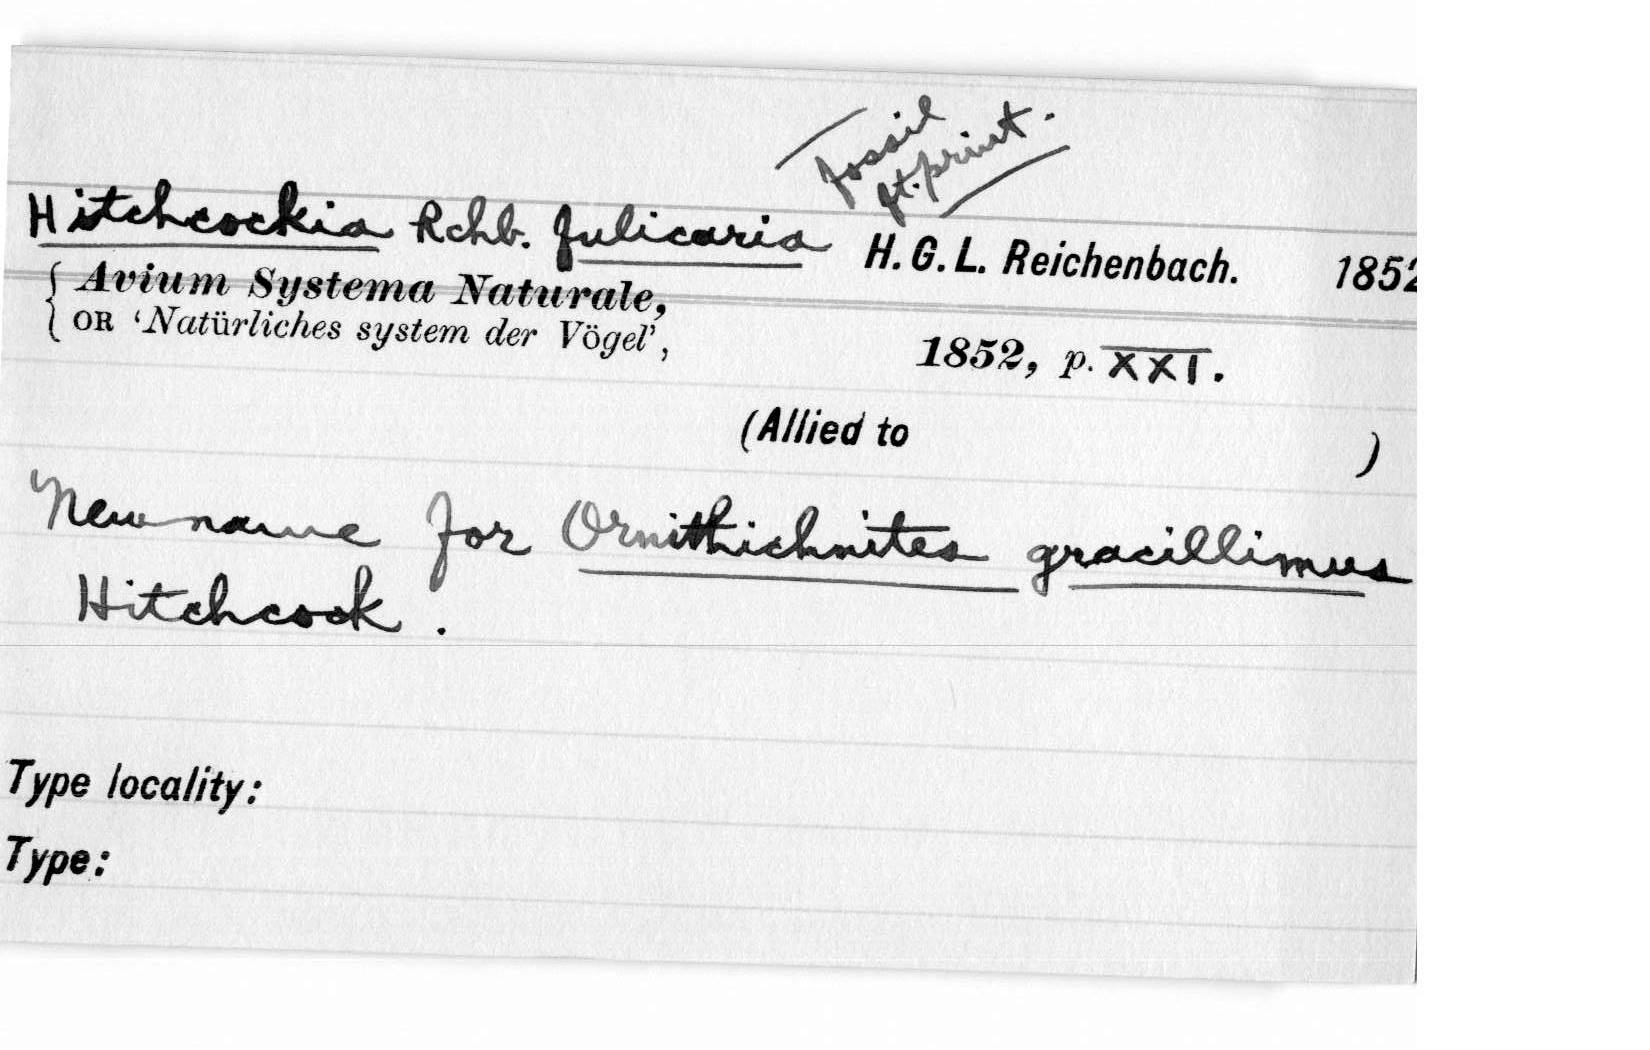 Fossil
ft. print.
Hitchcockia Rchb. fulicaria H. G. L. Reichenbach. 1852
{ Avium Systema Naturale,
OR ‘Natürliches system der Vögel’, 1852, p. XXI.
(Allied to )
New name for Ornithichnites gracillimus
Hitchcock.
Type locality:
Type: